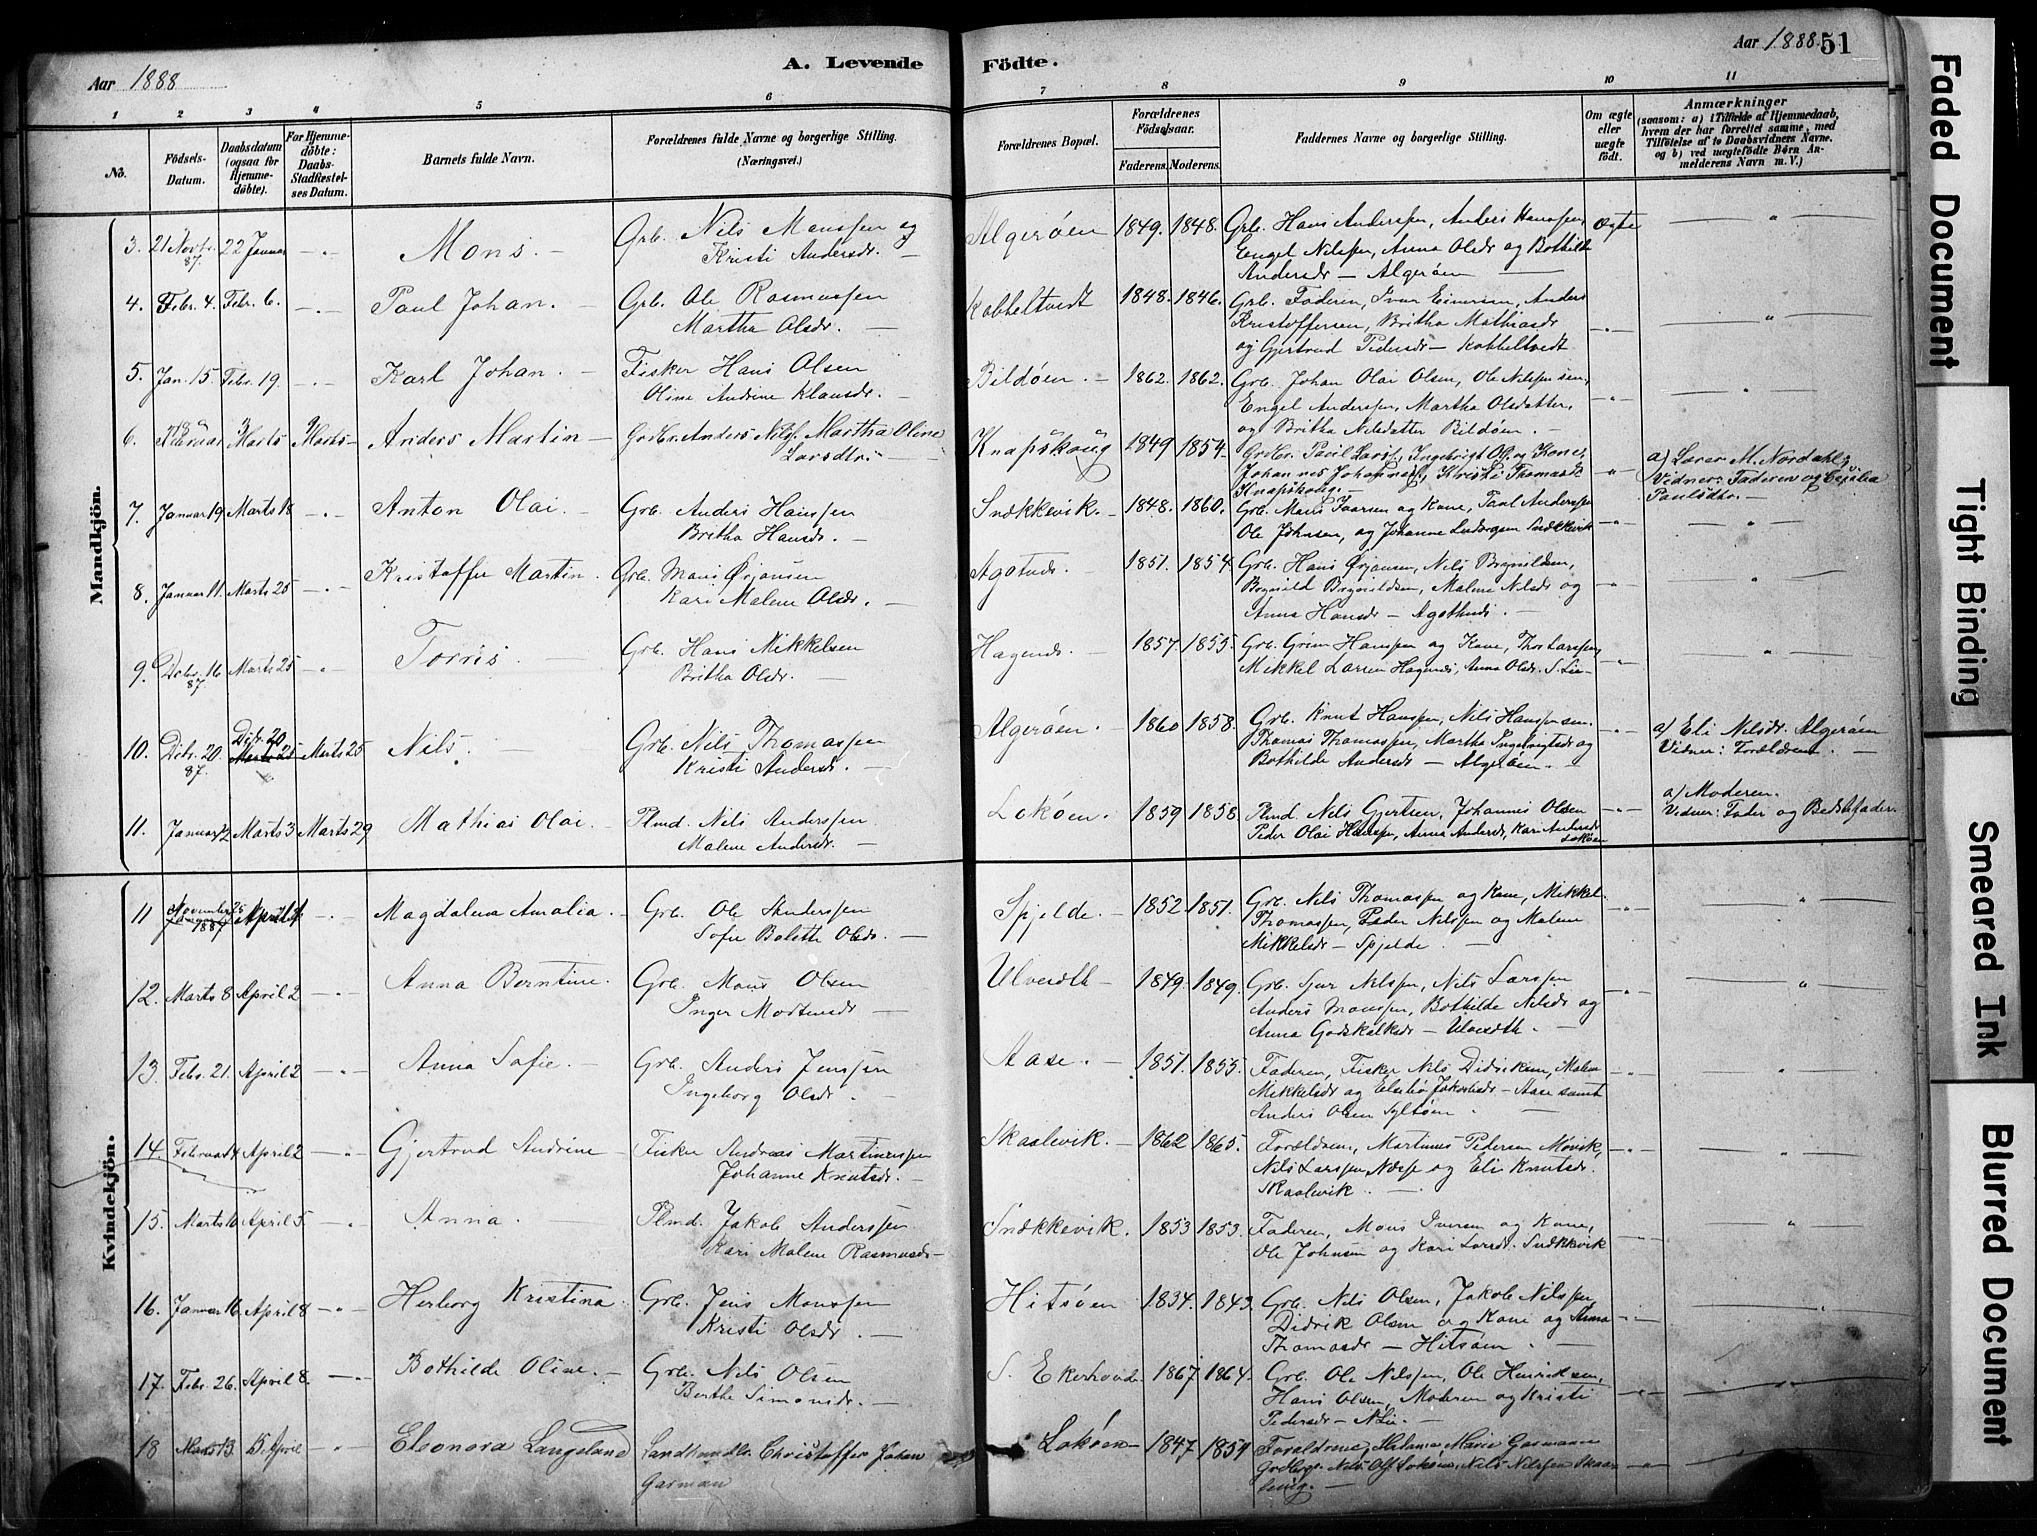 Aar 1888
A. Levende Födte.
Aar 1888. 51
1 2 3 4 5 6 7 8 9 10 11
No.
Födsels-Datum.
Daabsdatum (ogsaa for Hjemmedöbte).
For Hjemmedöbte: Daabs-Stadfæstelses Datum.
Barnets fulde Navn.
Forældrenes fulde Navne og borgerlige Stilling. (Næringsvei.)
Forældrenes Bopæl.
Forældrenes Födselsaar.
Faderens. Moderens.
Faddernes Navne og borgerlige Stilling.
Om ægte eller uægte födt.
Anmærkninger
(saasom: a) i Tilfælde af Hjemmedaab, hvem der har forrettet samme, med Tilföielse af to Daabsvidners Navne, og b) ved uægtefödte Börn Anmelderens Navn m. V.)
Mandkjön.
3. 21 Novbr. 87. 22 Januar Mons. Grb. Nils Monssen og Kristi Andersdr. Algeröen 1849. 1848. Grb. Hans Anderssen, Anders Hanssen, Engel Nilssen, Anna Olsdr og Bothilde Andersdr – Algeröen Ægte
4. Febr. 4. Febr. 6. Paul Johan. Grb. Ole Rasmussen Martha Olsdr. Kobbeltvedt 1848. 1846. Grb. Faderen, Ivar Einersen, Anders Kristoffersen, Britha Mathiasdr og Gjertrud Pedersdr – Kobbeltvedt
5. Jan. 15. Febr. 19. Karl Johan. Fisker Hans Olsen Oline Andrine Klausdr. Bildöen. 1862. 1862. Grb. Johan Olai Olsen, Ole Nilssen sen, Engel Anderssen, Martha Olsdatter, og Britha Nilsdatter Bildöen.
6. Marts Marts Anders Martin Grdbr. Anders Nilss. Martha Oline Larsdtr. Knapskoug 1849 1854. Grdbr. Paul Larss., Ingebrigt Ols. og Kone, Johannes Johanness., Kristi Thomasdtr Knapskoug. a) Lærer M. Nordahl, Vidner: Faderen og Paulsdtr.
7. Januar 19 Marts 18 Anton Olai. Grb. Anders Hanssen Britha Hansdr. Snekkevik. 1848. 1860. Grb. Mons Ivarsen og Kone, Paul Anderssen Ole Johnsen, og Johanne Snekkevik
8. Januar 11. Marts 25 Kristoffer Martin. Grb. Mons Örjansen Kari Malene Olsdr. Agotnes. 1851. 1854. Grb. Hans Örjansen, Nils Brynildsen, Brynild Brynildsen, Malene Nilsdr og Anna Hansdr – Agothnes.
9. Debr. 16 87. Marts 25 Torris. Grb. Hans Mikkelsen Britha Olsdr. Hagenes. 1857. 1855. Grb. Grim Hanssen og Kone, Thor Larssen, Mikkel Larsen Hagenes, Anna Olsdr. S. Lie
10. Debr. 20. 87. Dcbr. 20 Marts 25 Marts 25 Nils. Grb. Nils Thomassen Kristi Andersdr. Algeröen. 1860 1858. Grb. Knut Hanssen, Nils Hanssen sen. Thomas Thomassen, Martha Ingebrigtsdr og Bothilde Andersdr – Algeröen. a) Eli Nilsdr. Algeröen Vidner: Forældrene.
11. Januar 12 Marts 3 Marts 29 Mathias Olai. Plmd. Nils Anderssen Malene Andersdr. Loköen. 1859 1858. Plmd. Nils Gjertsen, Johannes Olsen Peder Olai Hanssen, Anna Andersdr, Kari Andersdr Loköen a) Moderen. Vidner: Fader og Bedstefader.
Kvindekjön.
11 November 25 1887 April 1 Magdalena Amalia. Grb. Ole Anderssen Sofie Bolette Olsdr. Spjelde. 1852 1851. Grb. Nils Thomassen og Kone, Mikkel Thomassen, Peder Nilssen og Malene Mikkelsdr – Spjelde.
12. Marts 8 April 2 Anna Berntine. Grb. Mons Olsen Inger Mortensdr Ulvesdth 1849. 1849. Grb. Sjur Nilssen, Nils Larssen Anders Monssen, Bothilde Nilsdr og Anna Godskalksdr – Ulvesdth.
13. Febr. 21. April 2 Anna Sofie. Grb. Anders Jenssen Ingeborg Olsdr. Aase. 1851. 1855. Faderen, Fisker Nils Didriksen, Malene Mikkelsdr og Elsebö Jakobsdr – Aase samt Anders Olsen Syltöen.
14. Februar 4 April 2 Gjertrud Andrine Fisker Andreas Martinussen Johanne Knutsdr. Skaalevik. 1862 1865. Forældrene, Martinus Pedersen Movik, Nils Larssen Næsse og Eli Knutsdr. Skaalevik.
15. Marts 10 April 5 Anna. Plmd. Jakob Anderssen Kari Malene Rasmusdr Snekkevik. 1853 1853. Faderen, Mons Iversen og Kone, Ole Johnsen og Kari Larsdr. Snekkevik
16. Januar 16. April 8 Herborg Kristina. Grb. Jens Monssen Kristi Olsdr. Hitsöen 1834. 1843. Grb. Nils Olsen, Jakob Nilssen Didrik Olsen og Kone og Anna Thomasdr – Hitsöen.
17. Febr. 26. April 8. Bothilde Oline. Grb. Nils Olsen Berthe Simonsdr. S. Ekerhovde 1867 1864. Grb. Ole Nilssen, Ole Henriksen, Hans Olsen, Moderen og Kristi Pedersdr – N. Lie.
18 Marts 13. 15 April Eleonora Langeland Landhandler Christoffer Johan Garman Loköen 1847 1859 Forældrene, Marie Garmann Grdbrge. Nils Ols. Loköen, Nils Nilssen
Faded Document
Tight Binding
Smeared Ink
Blurred Document